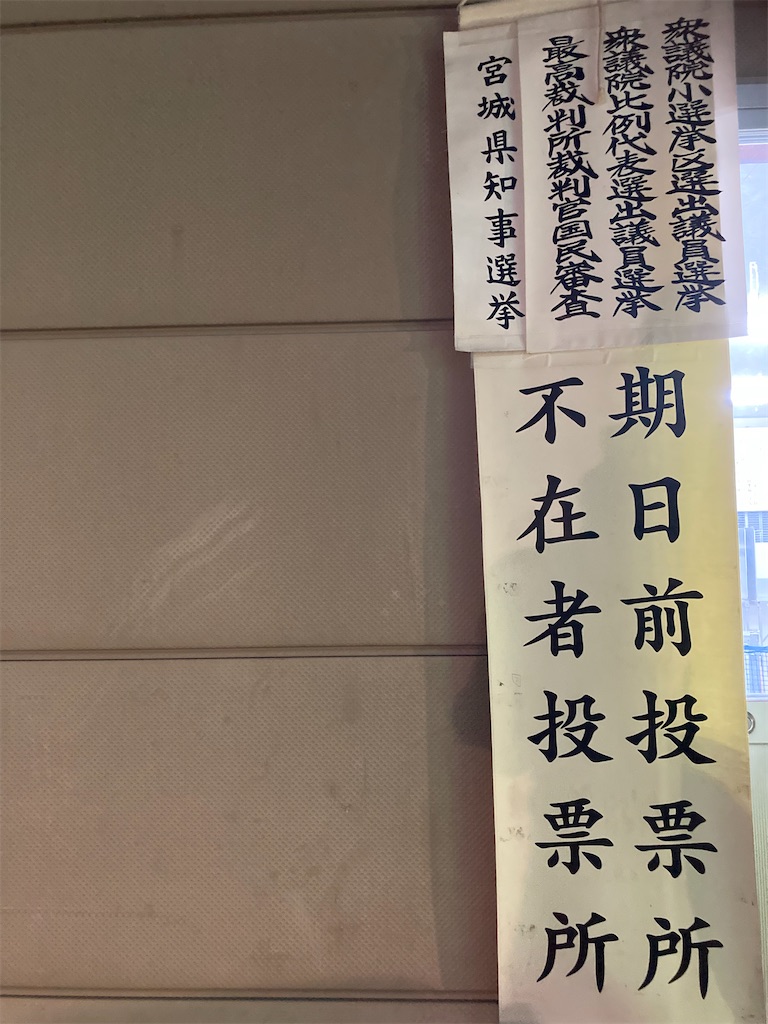 衆議院小選挙区選出議員選挙
衆議院比例代表選出議員選挙
最高裁判所裁判官国民審査
宮城県知事選挙
期日前投票所
不在者投票所